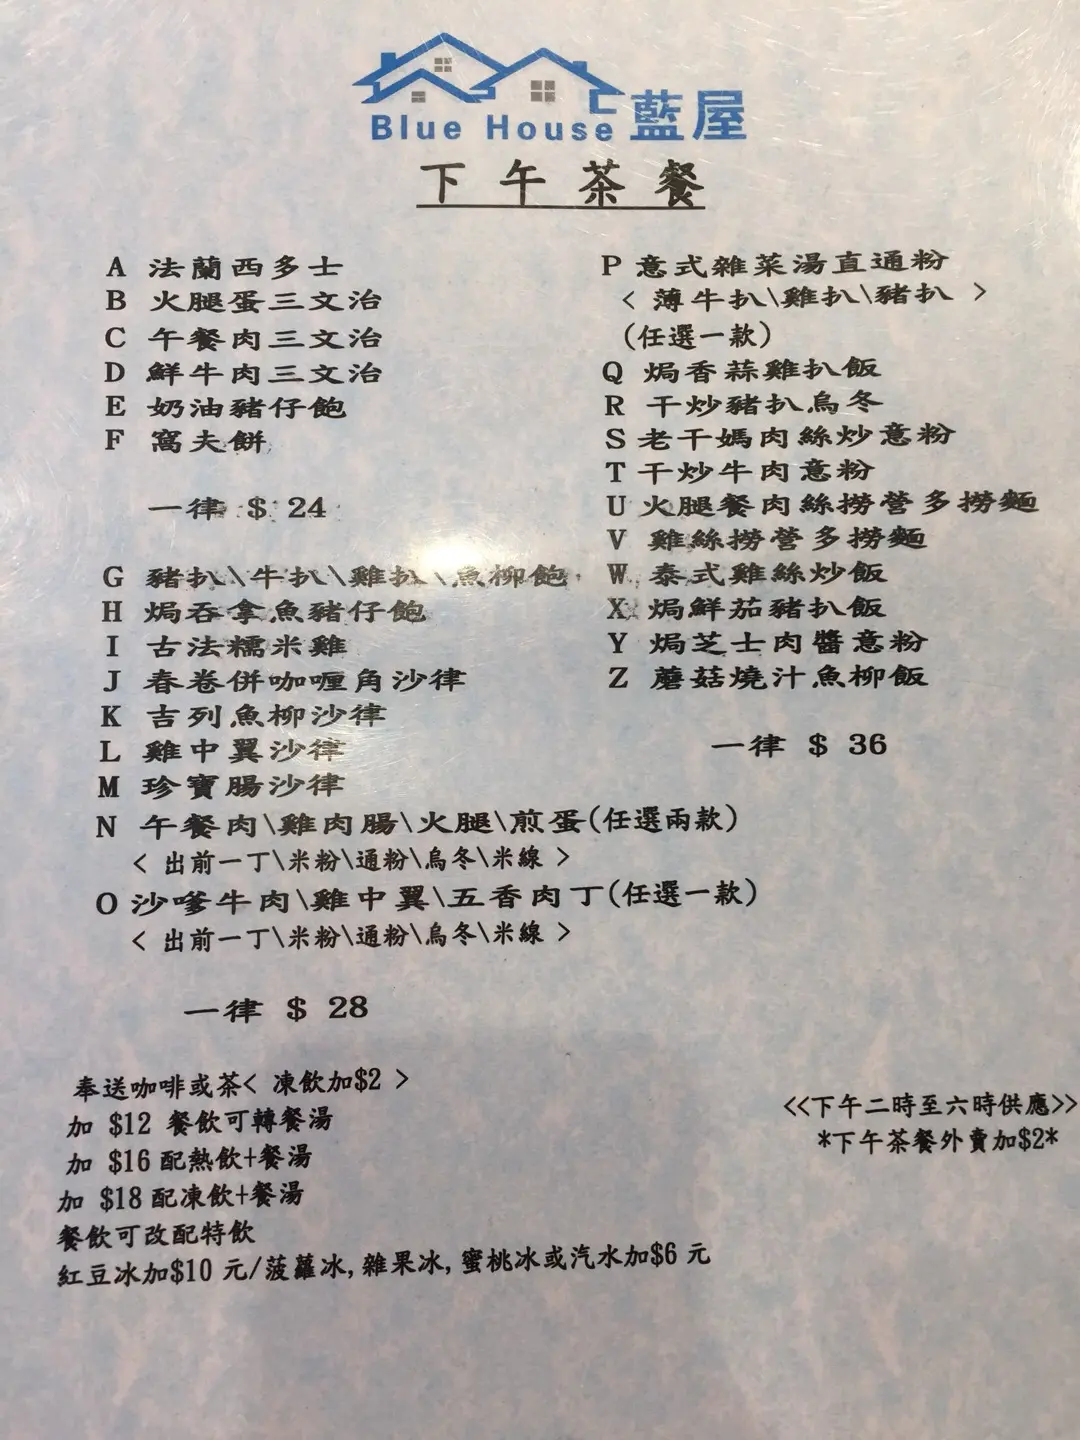 Blue House 藍屋
下午茶餐
A 法蘭西多士
B 火腿蛋三文治
C 午餐肉三文治
D 鮮牛肉三文治
E 奶油豬仔飽
F 窩夫餅
一律 $ 24
G 豬扒\牛扒\雞扒\魚柳飽
H 焗吞拿魚豬仔飽
I 古法糯米雞
J 春卷併咖喱角沙律
K 吉列魚柳沙律
L 雞中翼沙律
M 珍寶腸沙律
N 午餐肉\雞肉腸\火腿\煎蛋(任選兩款)
< 出前一丁\米粉\通粉\烏冬\米線 >
O 沙嗲牛肉\雞中翼\五香肉丁(任選一款)
< 出前一丁\米粉\通粉\烏冬\米線 >
一律 $ 28
P 意式雜菜湯直通粉
< 薄牛扒\雞扒\豬扒 >
(任選一款)
Q 焗香蒜雞扒飯
R 干炒豬扒烏冬
S 老干媽肉絲炒意粉
T 干炒牛肉意粉
U 火腿餐肉絲撈營多撈麵
V 雞絲撈營多撈麵
W 泰式雞絲炒飯
X 焗鮮茄豬扒飯
Y 焗芝士肉醬意粉
Z 蘑菇燒汁魚柳飯
一律 $ 36
奉送咖啡或茶< 凍飲加$2 >
加 $12 餐飲可轉餐湯
加 $16 配熱飲+餐湯
加 $18 配凍飲+餐湯
餐飲可改配特飲
紅豆冰加$10 元/菠蘿冰, 雜果冰, 蜜桃冰或汽水加$6 元
<<下午二時至六時供應>>
*下午茶餐外賣加$2*